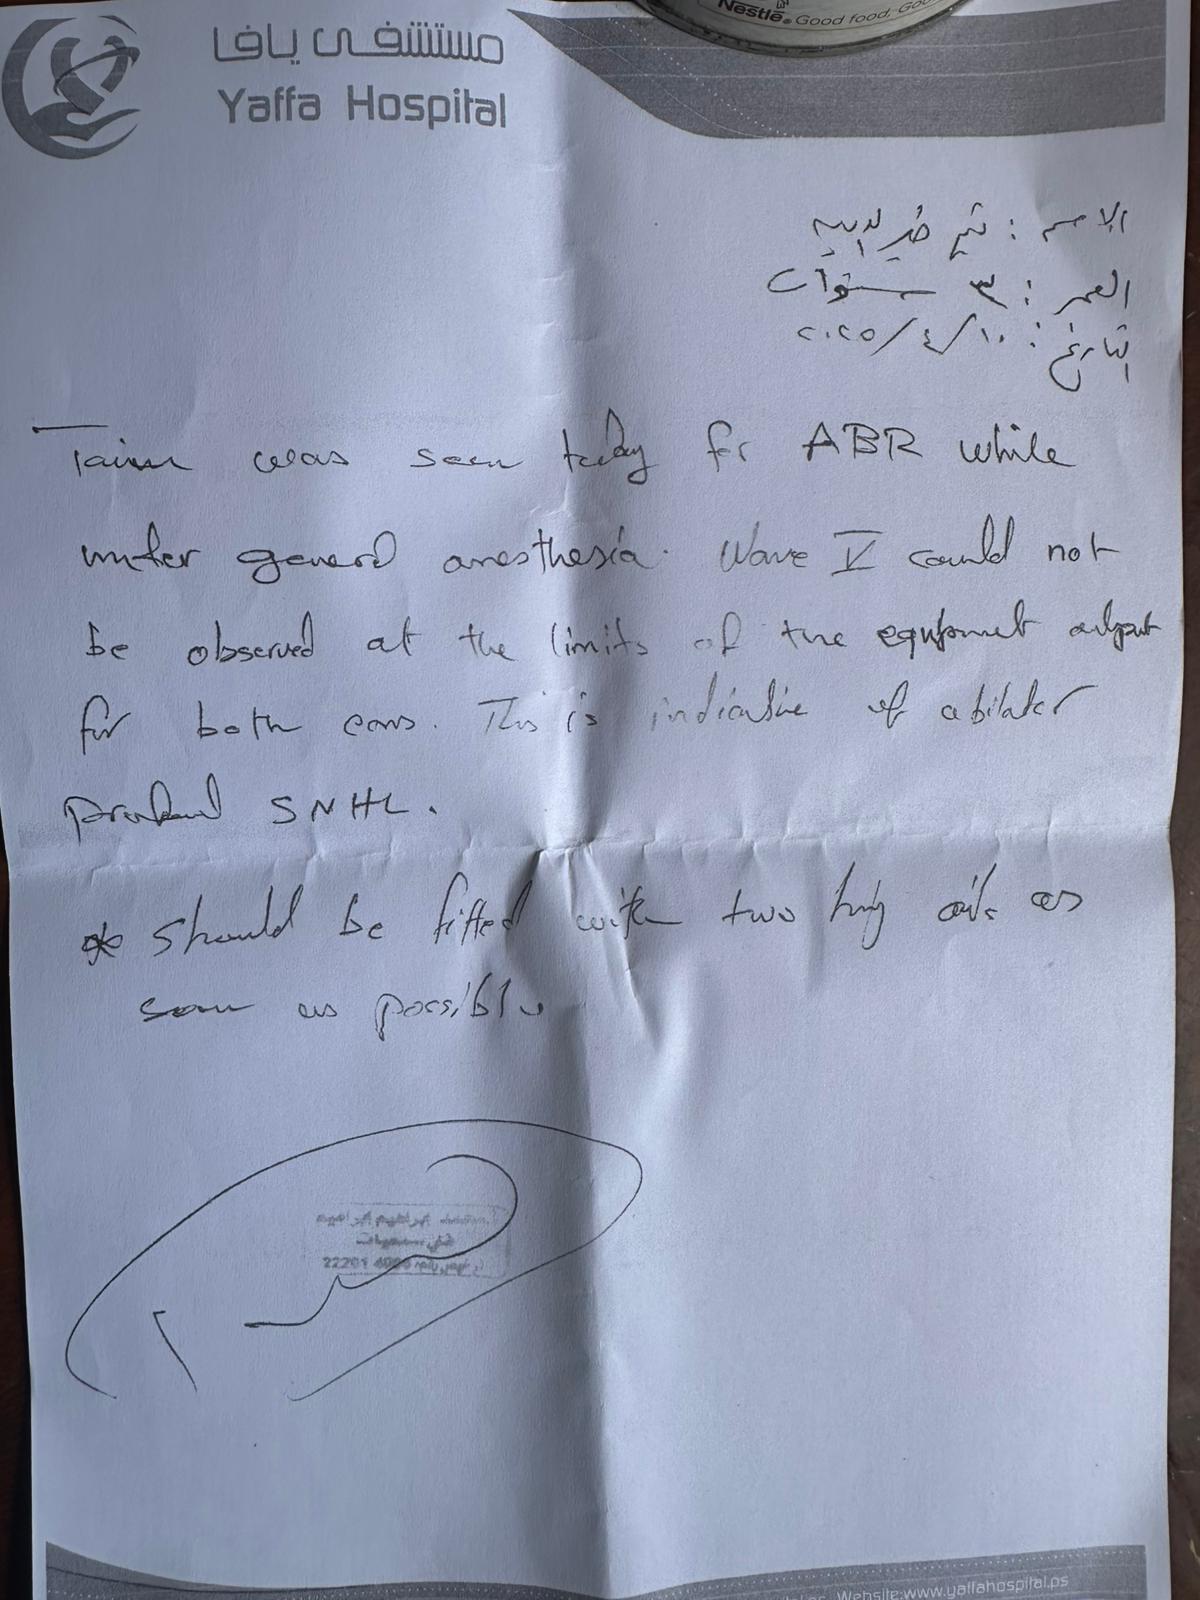 Nestlé® Good food, Goo
مستشفى يافا
Yaffa Hospital
الاسم : تيم خير الدين
العمر : ٣ سنوات
التاريخ : ١٠/٤/٢٠٢٥
Taim was seen today for ABR while
under general anesthesia. Wave V could not
be observed at the limits of the equipment output
for both ears. This is indicative of a bilater
SNHL.
* should be fitted with two aids as
soon as possible
22201
Website:www.yaffahospital.ps